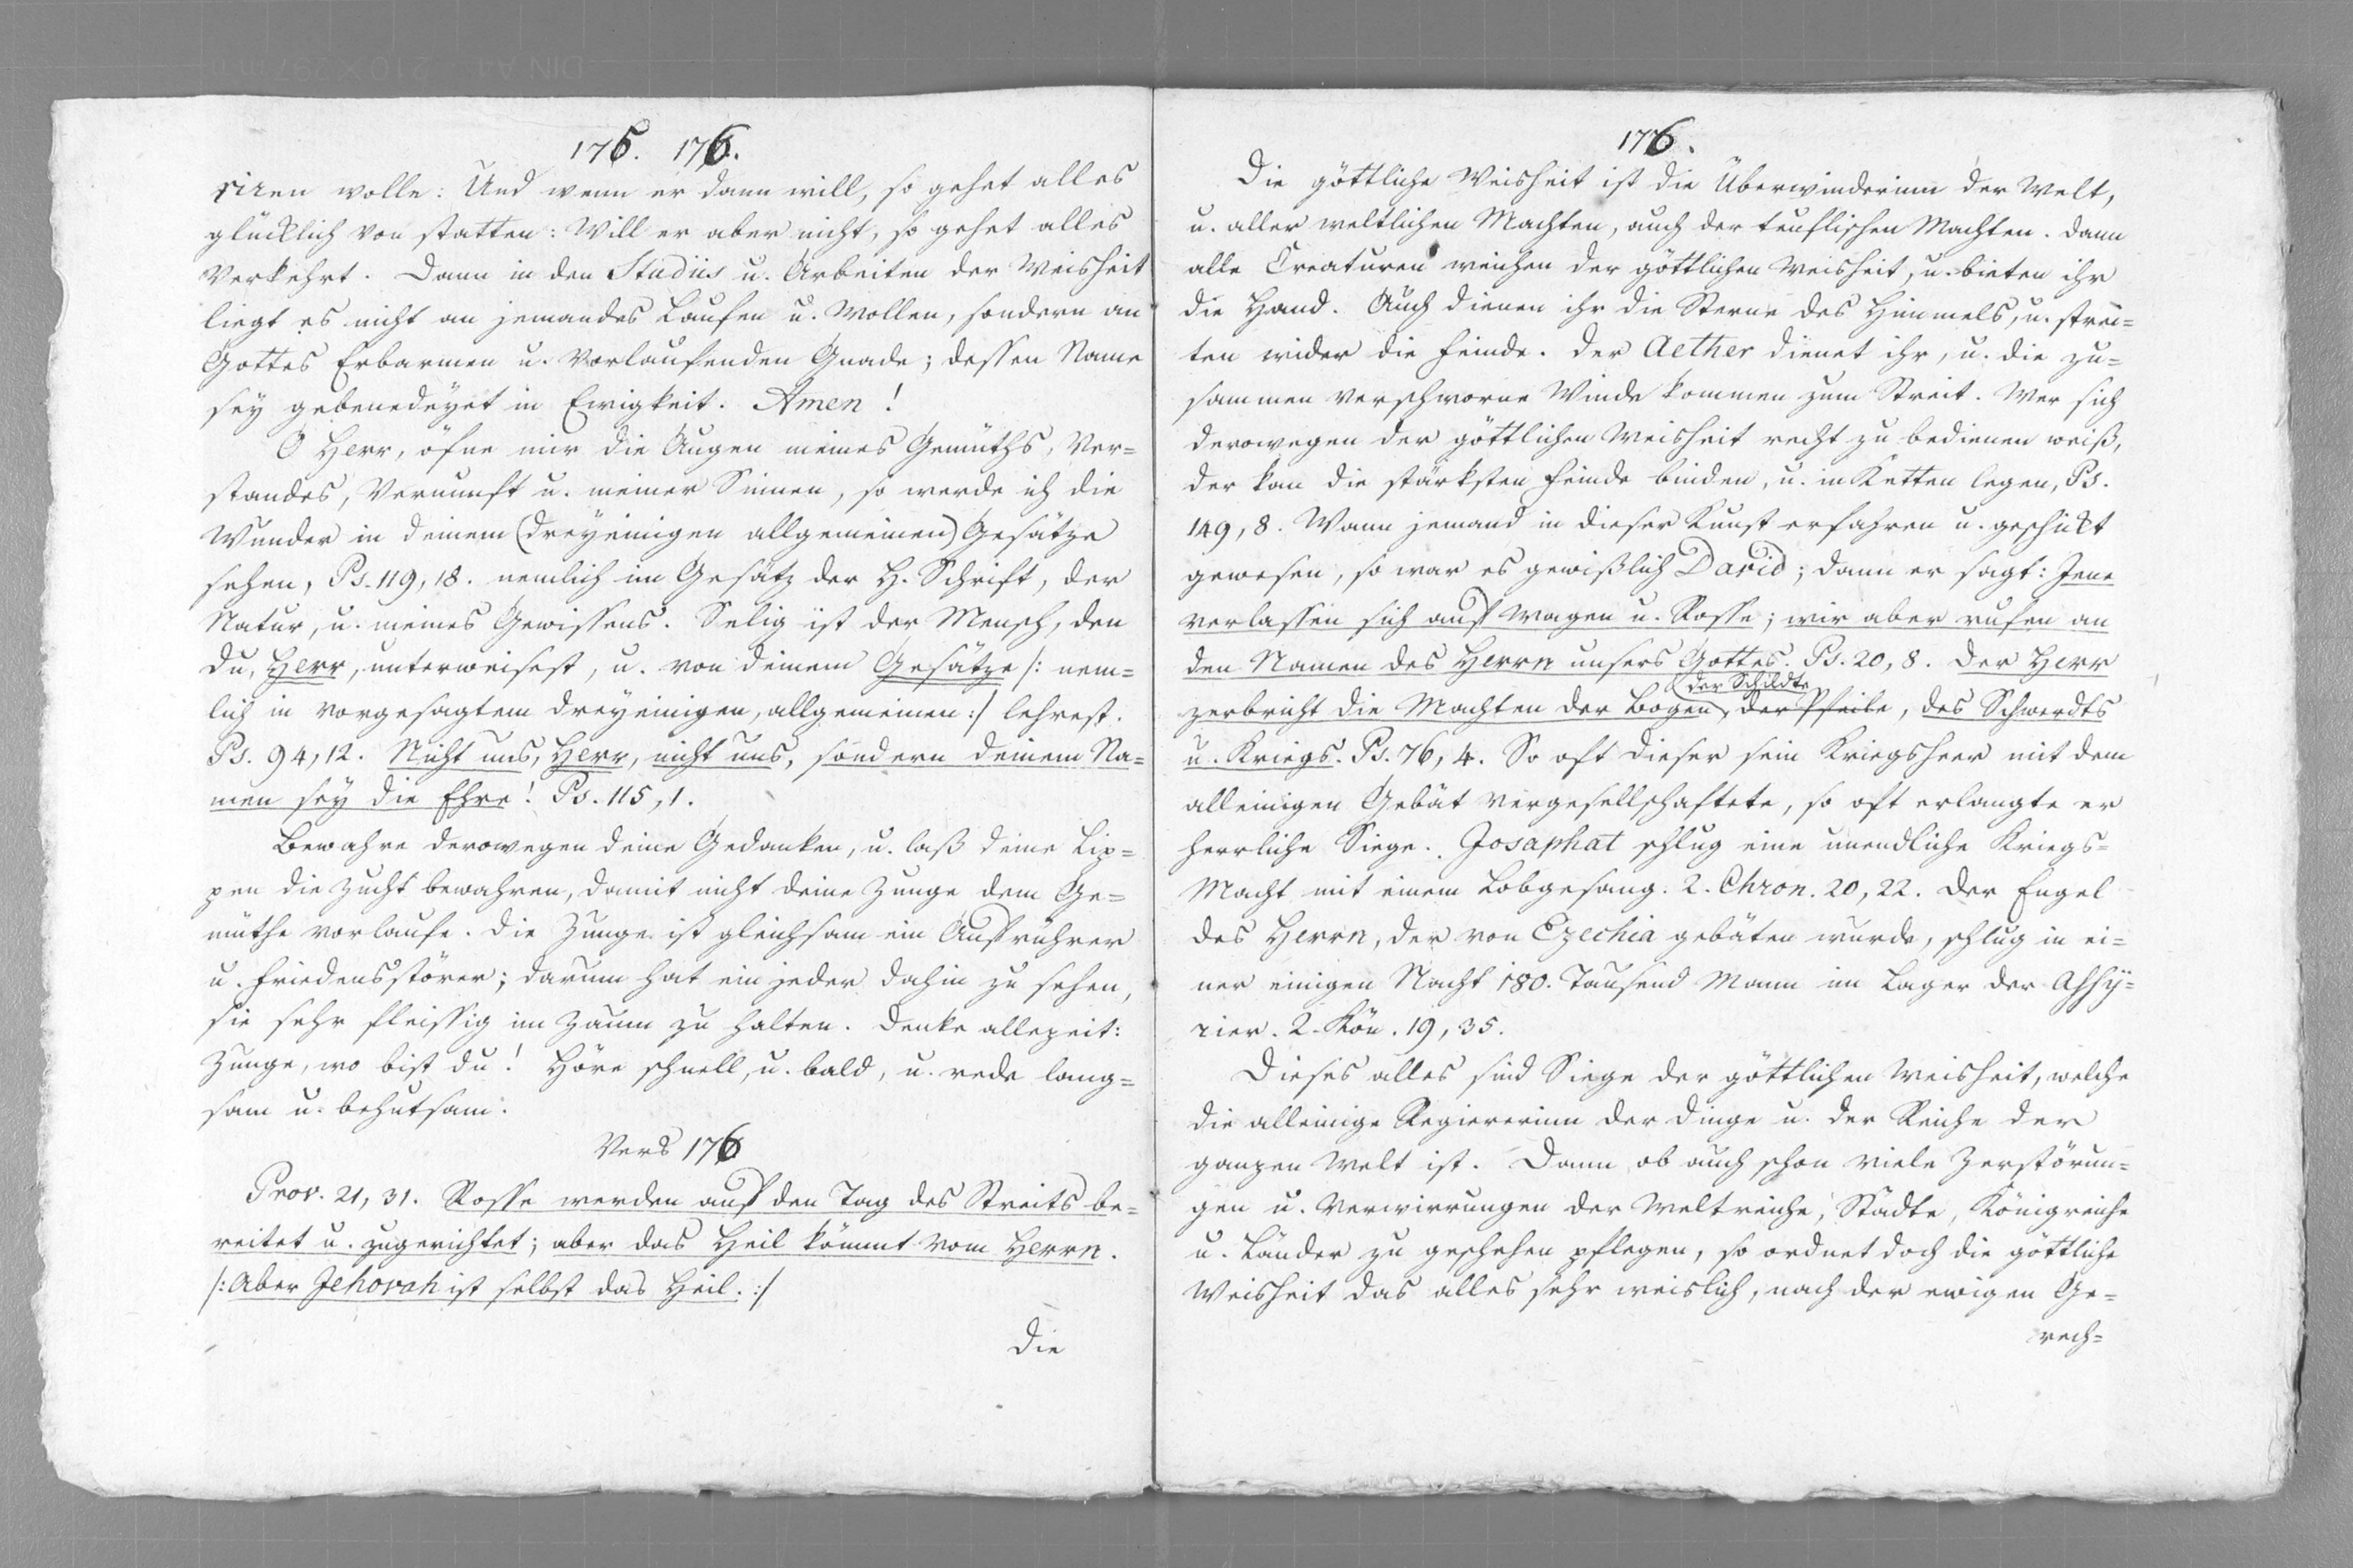 175. 176.
riren wolle: Und wenn er dann will, so gehet alles
glücklich von statten: Will er aber nicht, so gehet alles
verkehrt. Dann in den Studiis u. Arbeiten der Weisheit
liegt es nicht an jemandes Laufen u. Wollen, sondern an
Gottes Erbarmen u. vorlaufenden Gnade; dessen Name
sey gebenedeyet in Ewigkeit. Amen!
O Herr, öfne mir die Augen meines Gemüths, Ver=
standes, Vernunft u. meiner Sinnen, so werde ich die
Wunder in deinem (dreyeinigen allgemeinen) Gesätze
sehen, Ps. 119, 18. nemlich im Gesätz der H. Schrift, der
Natur, u. meines Gewissens. Selig ist der Mensch, den
du, Herr, unterweisest, u. von deinem Gesätze /: nem=
lich in vorgesagtem dreyeinigen, allgemeinen :/ lehrest.
Ps. 94, 12. Nicht uns, Herr, nicht uns, sondern deinem Na=
men sey die Ehre! Ps. 115, 1.
Bewahre derowegen deine Gedanken, u. laß deine Lip=
pen die Zucht bewahren, damit nicht deine Zunge dem Ge=
müthe vorlaufe. Die Zunge ist gleichsam ein Aufrührer
u. Friedensstörer; darum hat ein jeder dahin zu sehen,
sie sehr fleissig im Zaum zu halten. Denke allezeit:
Zunge, wo bist du! Höre schnell, u. bald, u. rede lang=
sam u. behutsam.
Vers 176
Prov. 21, 31. Rosse werden auf den Tag des Streits be=
reitet u. zugerichtet; aber das Heil kömmt vom Herrn.
/: Aber Jehovah ist selbst das Heil. :/
Die
176.
Die göttliche Weisheit ist die Überwinderinn der Welt,
u. aller weltlichen Machten, auch der teuflischen Machten. Dann
alle Creaturen weichen der göttlichen Weisheit, u. bieten ihr
die Hand. Auch dienen ihr die Sterne des Himmels, u. strei=
ten wider die Feinde. Der Aether dienet ihr, u. die zu=
sammen verschworne Winde kommen zum Streit. Wer sich
derowegen der göttlichen Weisheit recht zu bedienen weiß,
der kan die stärksten Feinde binden, u. in Ketten legen, Ps.
149, 8. Wann jemand in dieser Kunst erfahren u. geschikt
gewesen, so war es gewißlich David; dann er sagt: Jene
verlassen sich auf Wagen u. Rosse; wir aber rufen an
den Namen des Herrn unsers Gottes. Ps. 20, 8. Der Herr
der Schildte
zerbricht die Machten der Bogen, der Pfeile, des Schwerdts
u. Kriegs. Ps. 76, 4. So oft dieser sein Kriegsheer mit dem
alleinigen Gebät vergesellschaftete, so oft erlangte er
herrliche Siege. Josaphat schlug eine unendliche Kriegs=
Macht mit einem Lobgesang. 2. Chron. 20, 22. Der Engel
des Herrn, der von Ezechia gebäten wurde, schlug in ei=
ner einigen Nacht 180. Tausend Mann im Lager der Assy=
rier. 2. Kön. 19, 35.
Dieses alles sind Siege der göttlichen Weisheit, welche
die alleinige Regiererinn der Dinge u. der Reiche der
ganzen Welt ist. Dann ob auch schon viele Zerstörun=
gen u. Verwirrungen der Weltreiche, Städte, Königreiche
u. Länder zu geschehen pflegen, so ordnet doch die göttliche
Weisheit das alles sehr weislich, nach der ewigen Ge=
rech=